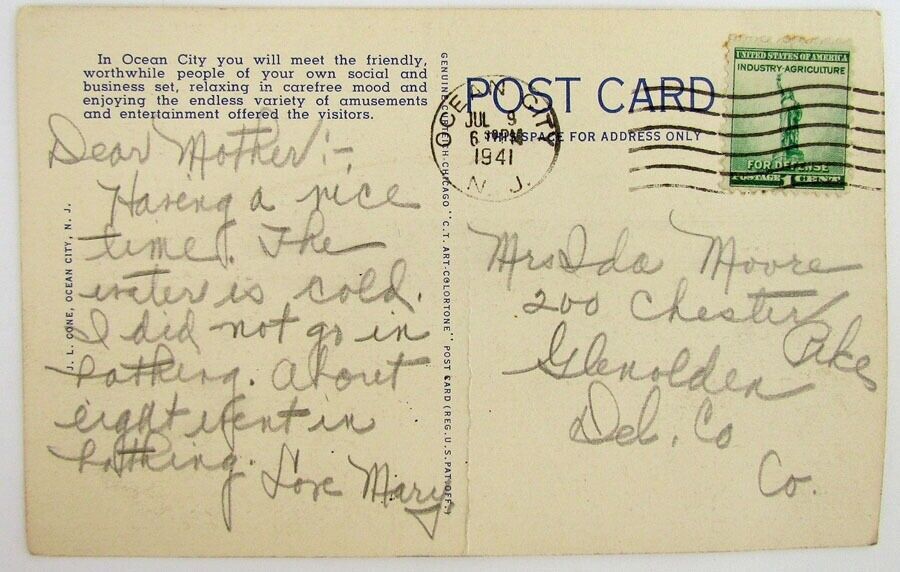 In Ocean City you will meet the friendly,
worthwhile people of your own social and
business set, relaxing in carefree mood and
enjoying the endless variety of amusements
and entertainment offered the visitors.
Dear Mother:-
Having a nice
time. The
water is cold.
I did not go in
bathing. About
eight went in
bathing.
Love Mary
J. L. CONE, OCEAN CITY, N. J.
GENUINE CURTEICH-CHICAGO "C.T. ART-COLORTONE" POST CARD (REG. U.S. PAT. OFF.)
POST CARD
THIS SPACE FOR ADDRESS ONLY
OCEAN CITY
JUL 9
6 PM
1941
N. J.
UNITED STATES OF AMERICA
INDUSTRY AGRICULTURE
FOR DEFENSE
POSTAGE 1 CENT
Mrs Ida Moore
200 Chester
Pike
Glenolden
Del. Co
Co.